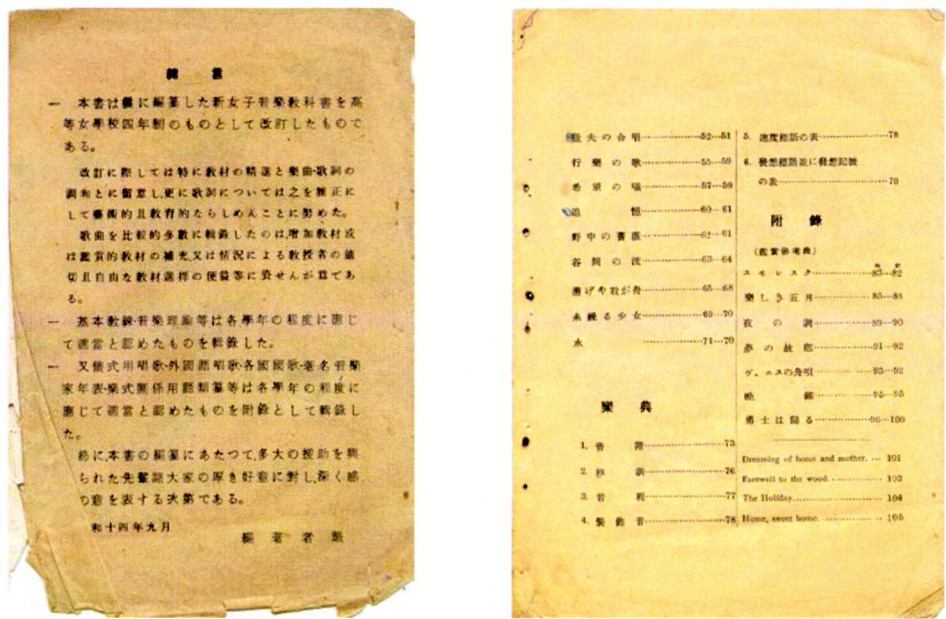 緒言
一 本書は曩に編纂した新女子音樂敎科書を高
等女學校四年制のものとして改訂したもので
ある。
改訂に際しては特に敎材の精選と樂曲・歌詞の
調和とに留意し、更に歌詞については之を雅正に
して藝術的且敎育的ならしめんことに努めた。
歌曲を比較的多數に輯錄したのは、增加敎材或
は鑑賞的敎材の補充、又は情況による敎授者の適
切且自由な敎材選擇の便益等に資せんが爲であ
る。
一 基本敎練・音樂理論等は各學年の程度に應じ
て適當と認めたものを輯錄した。
一 又儀式用唱歌・外國語唱歌・各國國歌・著名音樂
家年表・樂式關係用語類纂等は各學年の程度に
應じて適當と認めたものを附錄として輯錄し
た。
終に、本書の編纂にあたつて、多大の援助を與
られた先輩諸大家の厚き好意に對し、深く感
の意を表する次第である。
和十四年九月
編著者識
夫の合唱 52―51
行樂の歌 55―59
希望の 57―59
追憶 60―61
野中の薔薇 62―61
谷間の流 63―64
我が舟 65―68
少女 69―70
71―70
樂典
1. 音階 73
2. 移調 76
3. 音程 77
4. 裝飾音 78
5. 速度標語の表 78
6. 發想標語並に發想記號
の表 79
附錄
(鑑賞參考曲)
ユモレスク 83―82
樂しき五月 85―88
夜の調 89―90
夢の故鄕 91―92
ヴェニスの舟唄 93―92
晩鐘 95―95
勇士は歸る 96―100
Dreaming of home and mother. 101
Farewell to the wood. 103
The Holiday. 104
Home, sweet home. 105